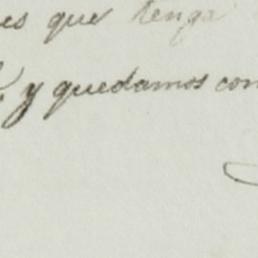 es que tenga
y quedamos con